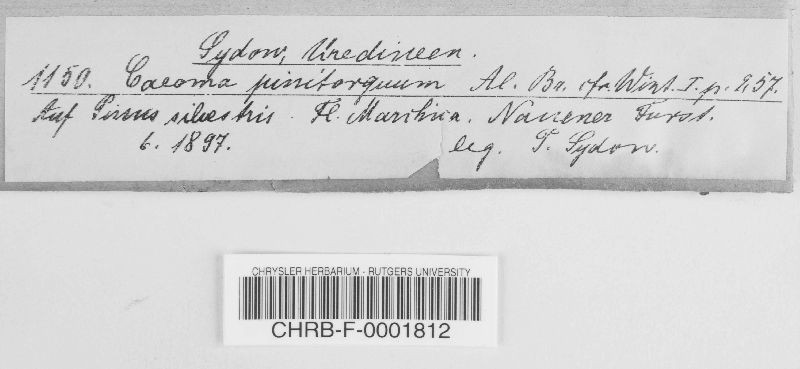 Sydow, Uredineen.
1150. Caeoma pinitorquum Al. Br. cfr. Wint. I. p. 257.
Auf Pinus silvestris. Fl. Marchica. Nauener Forst.
6. 1897. leg. P. Sydow.
CHRYSLER HERBARIUM - RUTGERS UNIVERSITY
CHRB-F-0001812